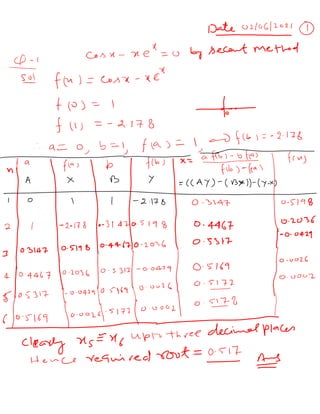 Date 02/06/2021 ①
Q-1 cosx - xe^x = 0 by secant method
Sol f(x) = cosx - xe^x
f(0) = 1
f(1) = -2.178
∴ a = 0, b = 1, f(a) = 1, f(b) = -2.178
n a f(a) b f(b) x = a f(b) - b f(a) / f(b) - f(a) f(x)
A X B Y = ((AY) - (BX)) ÷ (Y-X)
1 0 1 1 -2.178 0.3147 0.5198
2 1 -2.178 0.3147 0.5198 0.4467 0.2036
3 0.3147 0.5198 0.4467 0.2036 0.5317 -0.0429
4 0.4467 0.2036 0.5317 -0.0429 0.5169 0.0026
5 0.5317 -0.0429 0.5169 0.0026 0.5172 0.0002
6 0.5169 0.0026 0.5172 0.0002 0.5178
Clearly x5 ≡ x6 upto three decimal places
Hence required root = 0.517 Ans